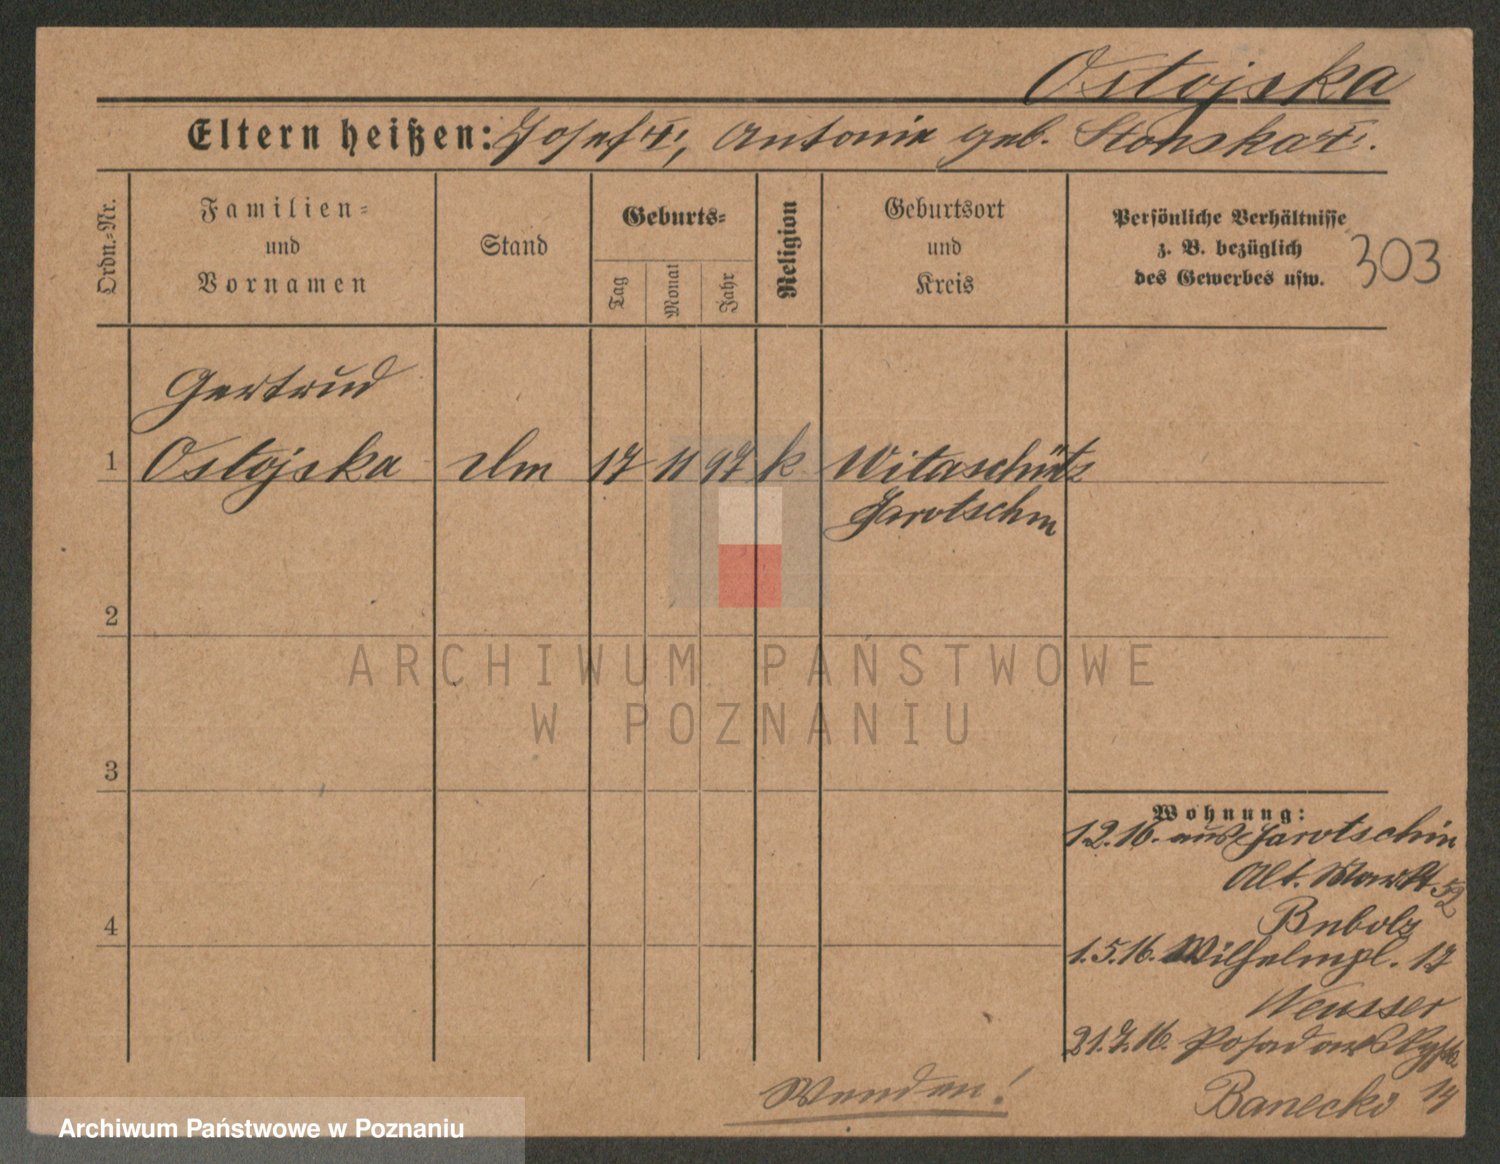 Ostojska
Eltern heißen: Josef †, Antonie geb. Stonska †.
Ordn.-Nr.
Familien-
und
Vornamen
Stand
Geburts-
Tag
Monat
Jahr
Religion
Geburtsort
und
Kreis
Persönliche Verhältnisse
z. B. bezüglich
des Gewerbes usw.
303
Gertrud
1 Ostojska 17 11 97 k Witaschütz
Jarotschin
2
ARCHIWUM PAŃSTWOWE
W POZNANIU
3
Wohnung:
1.2.16. aus Jarotschin
Alt. Markt 52
Bubolz
4
1.5.16. Wilhelmpl. 17
Neusser
21.7.16. Posadowsky
Banecki 14
Wenden!
Archiwum Państwowe w Poznaniu